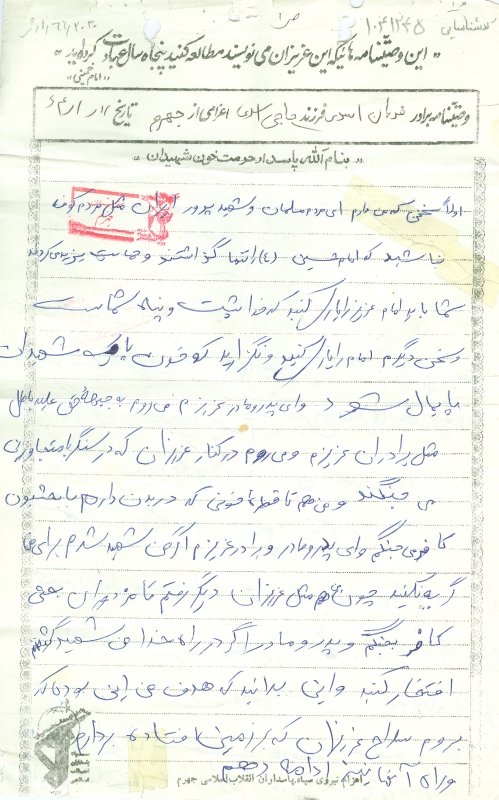 کد شناسایی ۱۰۴۱۲۴۵
«این وصیّتنامه هائیکه این عزیزان می نویسند مطالعه کنید پنجاه سال عبادت کرده اید»
«امام خمینی»
وصیّتنامه برادر قربان اسدی فرزند حاجی اعزامی از جهرم تاریخ
«بنام الله پاسدار حرمت خون شهیدان»
اولاً سخنی که من دارم ای مردم مسلمان و شهید پرور ایران مثل مردم کوفه
نباشید که امام حسین (ع) را تنها گذاشتند و
شما باید امام عزیز را یاری کنید که خدا پشت و پناه شماست
و سخن دیگرم امام را یاری کنید و نگذارید که خون پاک شهیدان
پایمال شود و ای پدر و مادر عزیزم من می روم به جبهه حق علیه باطل
مثل برادران عزیزم و می روم در کنار عزیزان که در سنگر با متجاوزین
می جنگند و من هم تا قطره خونی که در بدن دارم با بعثیون
کافر می جنگم و ای پدر و مادر و برادر عزیزم اگر من شهید شدم برای من
گریه نکنید چون من هم مثل عزیزان دیگر رفتم تا مزدوران بعثی
کافر بجنگم و پدر و مادر اگر در راه خدا من شهید گشتم
افتخار کنید و این بدانید که هدف من این بوده که
بروم سلاح عزیزان که بر زمین افتاده بردارم
و راه آنها را ادامه دهم
اعزام نیروی سپاه پاسداران انقلاب اسلامی جهرم